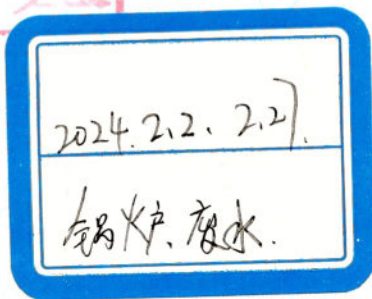 2024.2.2、2.27.
锅炉、废水.